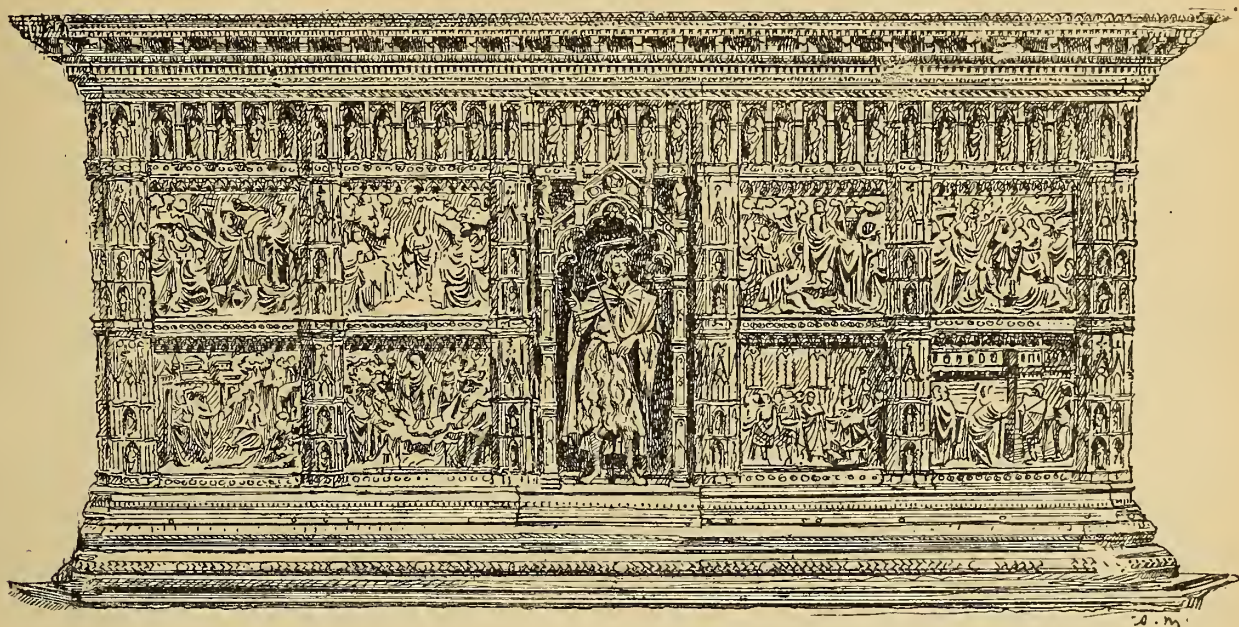 A. M.